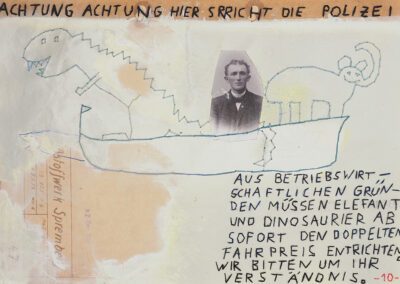 ACHTUNG ACHTUNG HIER SRRICHT DIE POLIZEI
AUS BETRIEBSWIRT-
SCHAFTLICHEN GRÜN-
DEN MÜSSEN ELEFANT
UND DINOSAURIER AB
SOFORT DEN DOPPELTEN
FAHRPREIS ENTRICHTEN
WIR BITTEN UM IHR
VERSTÄNDNIS.
-10-